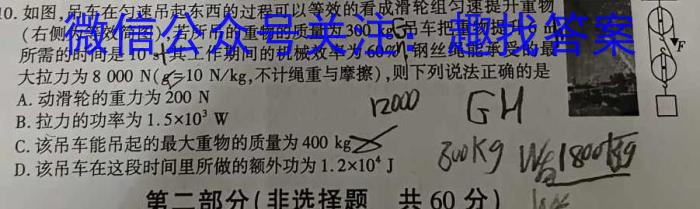 10. 如图,吊车在匀速吊起东西的过程可以等效的看成滑轮组匀速提升重物
(右侧为等效简图),若所吊的重物的质量为300 kg,吊车把重物提
所需的时间是10 s,其工作期间的机械效率为60%,钢丝绳能承受的最
大拉力为8 000 N(g=10 N/kg,不计绳重与摩擦),则下列说法正确的是
A. 动滑轮的重力为200 N
B. 拉力的功率为1.5×10³ W
C. 该吊车能吊起的最大重物的质量为400 kg
D. 该吊车在这段时间里所做的额外功为1.2×10⁴ J
第二部分(非选择题 共60分)
微信公众号关注:趣找答案
F
12000
GH
300kg